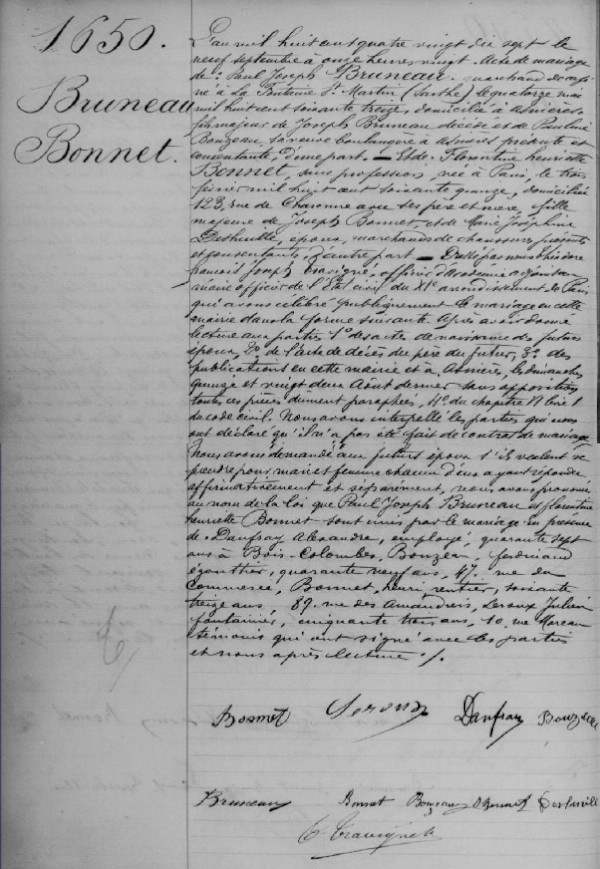 1650.
Bruneau
Bonnet.
L'an mil huit cent quatre vingt dix sept le
neuf septembre à onze heures vingt. Acte de mariage
de : Paul Joseph Bruneau. marchand de vins
né à La St Martin (Sarthe) le quatorze mai
mil huit cent soixante treize, domicilié à Asnières
fils majeur de Joseph Bruneau décédé et de Pauline
Bouzeau, sa veuve boulangère à Asnières présente et
consentante, d'une part. — Et de Florentine henriette
Bonnet, sans profession, née à Paris, le trois
février mil huit cent soixante quinze, domiciliée
128, rue de Charonne avec ses père et mère, fille
majeure de Joseph Bonnet, et de Marie Joséphine
époux, marchands de chaussures présents
et consentants, d'autre part — Par nous Théodore
françois Joseph Travigné, officier d'Académie adjoint au
maire officier de l'Etat civil du XIe arrondissement de Paris
qui avons célébré publiquement le mariage en cette
mairie dans la forme suivante. Après avoir donné
lecture aux parties 1º des actes de naissance des futurs
époux, 2º de l'acte de décès du père du futur, 3º des
publications en cette mairie et à Asnières, les dimanches
quinze et vingt deux Août dernier sans opposition
toutes ces pièces dûment paraphées, 4º du chapitre VI livre 1
du code civil. Nous avons interpellé les parties qui nous
ont déclaré qu'il n'a pas été fait de contrat de mariage
Nous avons demandé aux futurs époux s'ils veulent se
prendre pour mari et femme chacun d'eux ayant répondu
affirmativement et séparément, nous avons prononcé
au nom de la loi que Paul Joseph Bruneau et florentine
henriette Bonnet sont unis par le mariage. En présence
de : Danfray Alexandre, employé, quarante sept
ans à Bois-Colombes, Bouzeau, ferdinand
quarante neuf ans, 47, rue du
Commerce, Bonnet, henri, rentier, soixante
treize ans, 89, rue des Amandiers, Leroux Julien
fontainier, cinquante trois ans, 10, rue Moreau
témoins qui ont signé avec les parties
et nous après lecture ./.
Bonnet Leroux Danfray Bouzeau
Bruneau Bonnet Bouzeau Bonnet
T. Travigné